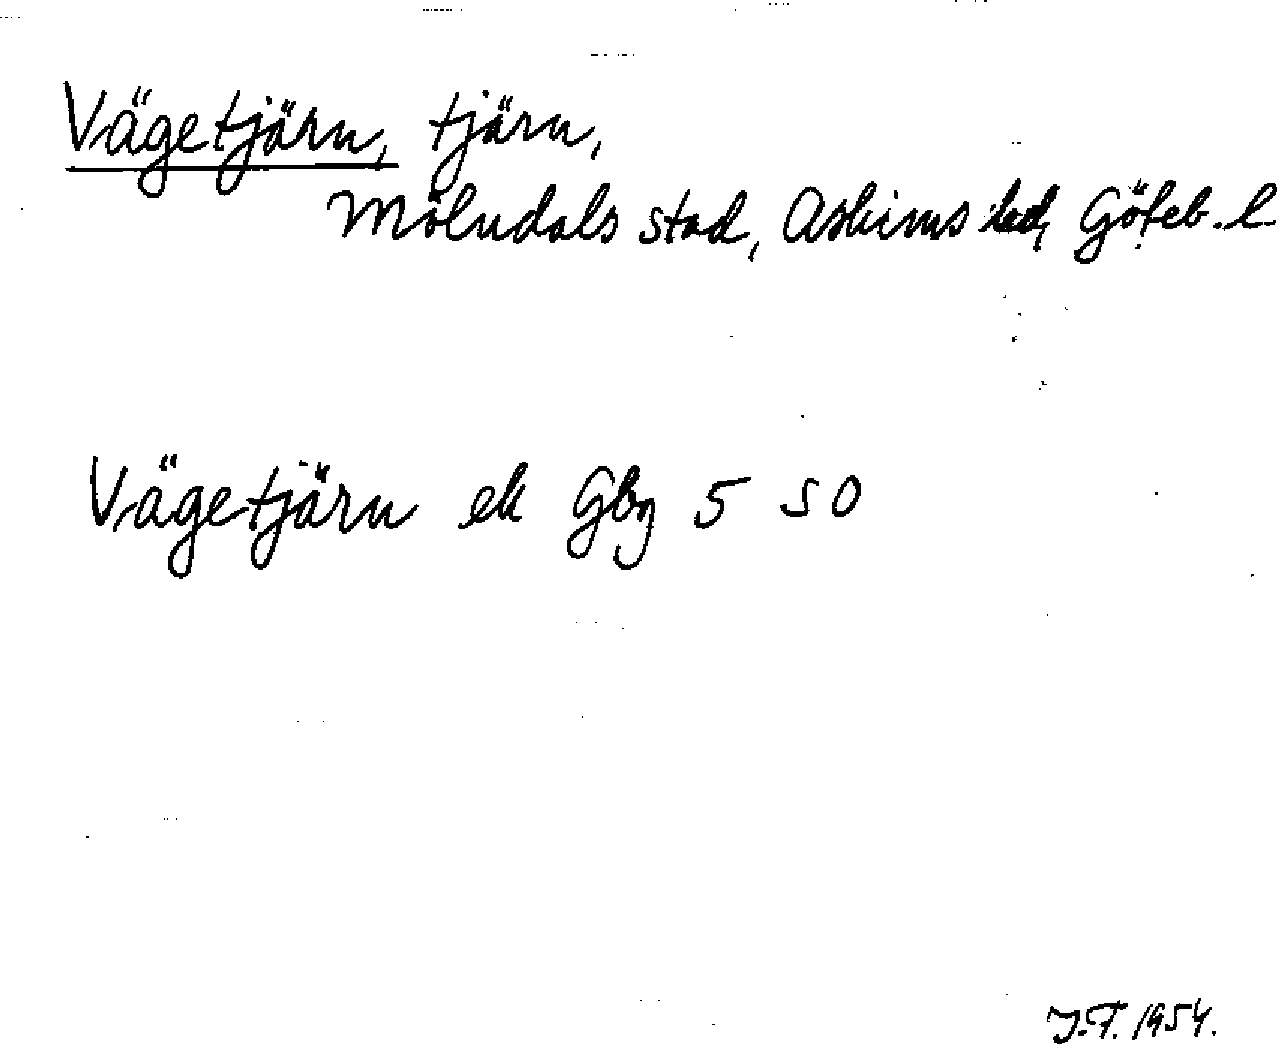 Vägetjärn, tjärn,
Mölndals stad, Askims hd, Göteb. l.
Vägetjärn ek Gbg 5 SO
J.F. 1954.